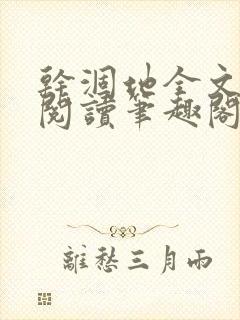 幹涸地全文
閱讀筆趣閣
離愁三月雨